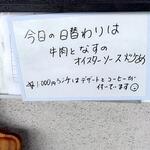 今日の日替わりは
牛肉となすの
オイスターソース炒め
¥1,000円ランチはデザートとコーヒーが
付いています☺